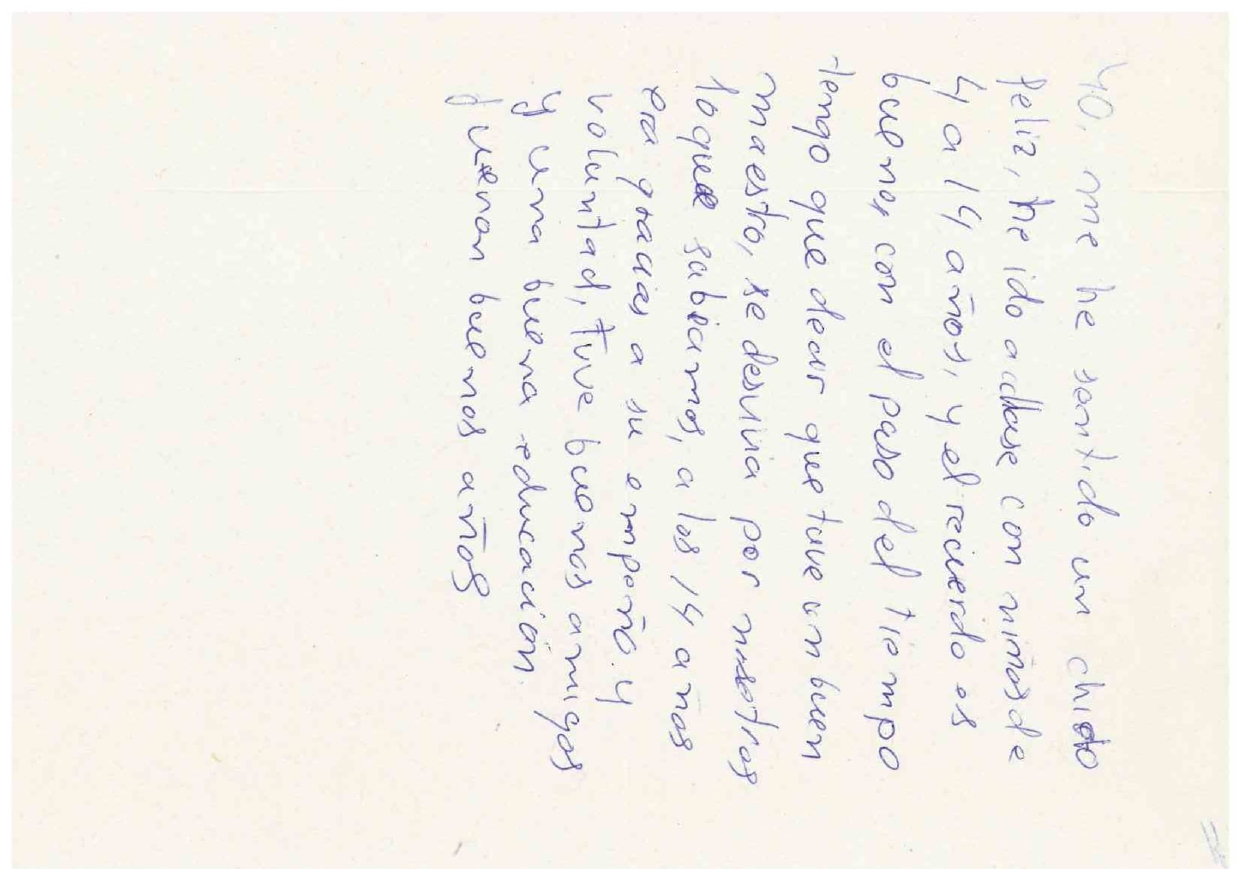 40. me he sentido un chico
feliz, he ido a cllase con niños de
4 a 14 años, y el recuerdo es
bueno, con el paso del tiempo
tengo que decir que tuve un buen
maestro, se desuivia por nosotros
lo que sabiamos, a los 14 años
era gracias a su empeño y
voluntad, tuve buenos amigos
y una buena educación.
fueron buenos años